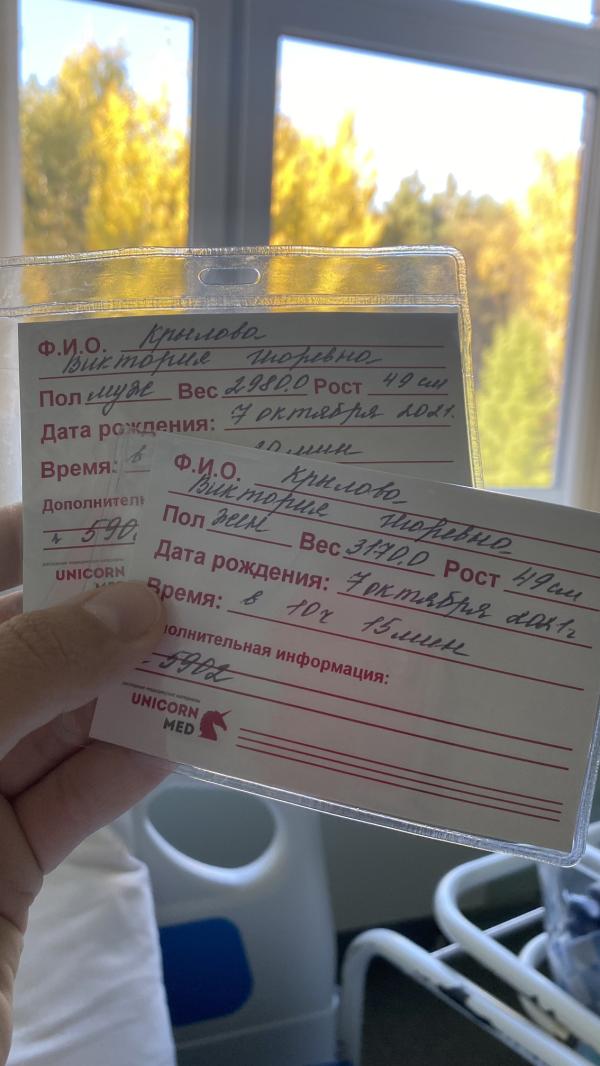 Ф.И.О. Крылова
Виктория Игоревна
Пол муж Вес 2980.0 Рост 49 см
Дата рождения: 7 октября 2021.
Время: в 10 мин
Дополнитель
590
UNICORN
MED
Ф.И.О. Крылова
Виктория Игоревна
Пол жен Вес 3170.0 Рост 49 см
Дата рождения: 7 октября 2021г
Время: в 10ч 15 мин
полнительная информация:
5902
UNICORN
MED